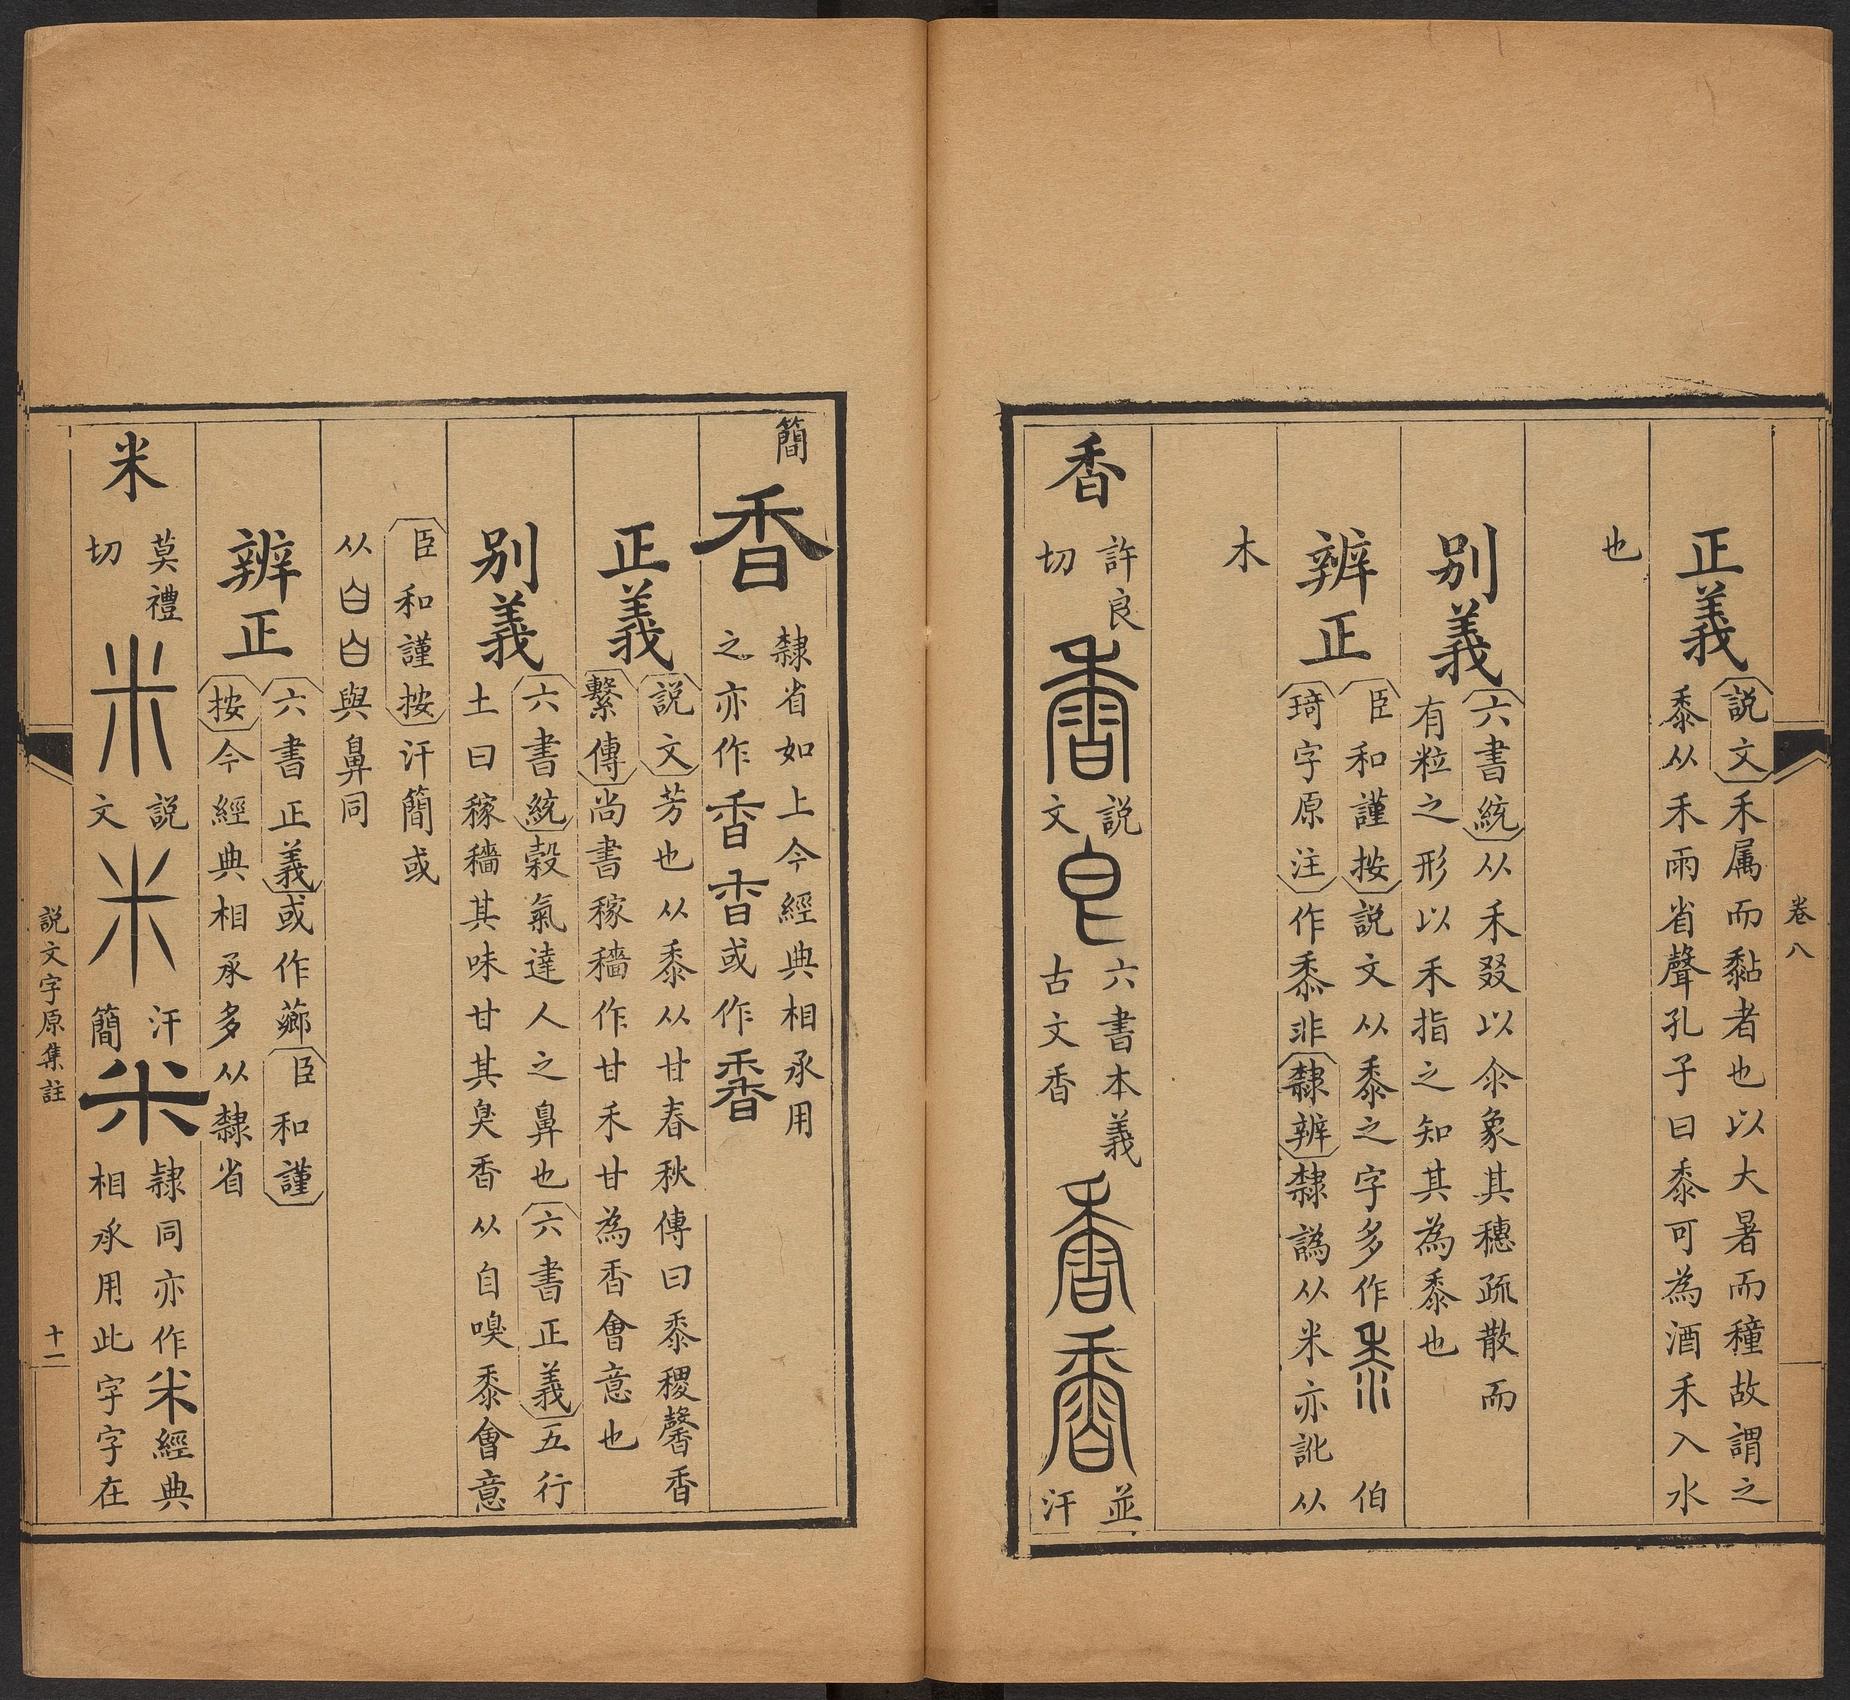 卷八
正義
説文禾属而黏者也以大暑而穜故謂之
黍从禾雨省聲孔子曰黍可為酒禾入水
也
别義
六書統从禾叕以氽象其穗疏散而
有粒之形以禾指之知其為黍也
辨正
臣和謹按説文从黍之字多作黍伯
琦字原注作黍非隸辨隸譌从米亦訛从
木
香
許良
切
香
説
文
皀
六書本義
古文香
香
香
並
汗
簡
香
隸省如上今經典相承用
之亦作香香或作香
正義
説文芳也从黍从甘春秋傳曰黍稷馨香
繫傳尚書稼穡作甘禾甘為香會意也
别義
六書統榖氣達人之鼻也六書正義五行
土曰稼穡其味甘其臭香从自嗅黍會意
臣和謹按汗簡或
从自自與鼻同
辨正
六書正義或作薌臣和謹
按今經典相承多从隸省
米
莫禮
切
米
説
文
米
汗
簡
米
隷同亦作米經典
相承用此字字在
説文字原集註
十一